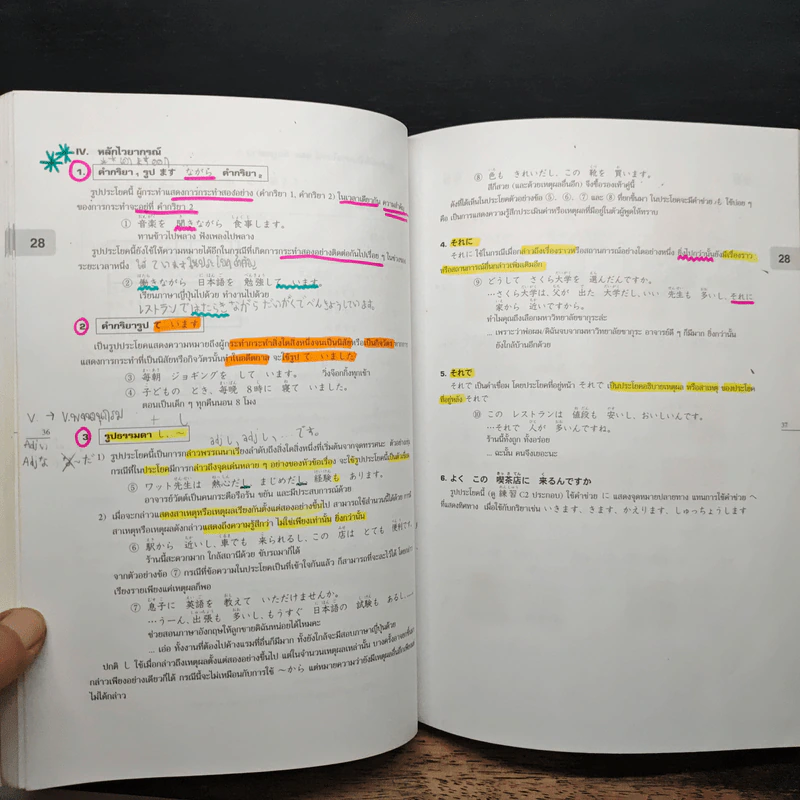 IV. หลักไวยากรณ์
1. คำกริยา₁ รูป ます ながら คำกริยา₂
รูปประโยคนี้ ผู้กระทำแสดงการกระทำสองอย่าง (คำกริยา 1, คำกริยา 2) ในเวลาเดียวกัน
ของการกระทำจะอยู่ที่ คำกริยา 2
① 音楽を 聞きながら 食事します。
ทานข้าวไปพลาง ฟังเพลงไปพลาง
28
รูปประโยคนี้ยังใช้ให้ความหมายได้อีกในกรณีที่เกิดการกระทำสองอย่างติดต่อกันไปเรื่อย ๆ ในช่วง
ระยะเวลาหนึ่ง
② 働きながら 日本語を 勉強して います。
เรียนภาษาญี่ปุ่นไปด้วย ทำงานไปด้วย
レストランではたらきながらだいがくでべんきょうしています。
2 คำกริยารูป て います
เป็นรูปประโยคแสดงความหมายถึงผู้กระทำกระทำสิ่งใดสิ่งหนึ่งจนเป็นนิสัยหรือเป็นกิจวัตร
แสดงการกระทำที่เป็นนิสัยหรือกิจวัตรนั้นทำในอดีตกาล จะใช้รูป て いました
③ 毎朝 ジョギングを して います。 วิ่งจ๊อกกิ้งทุกเช้า
④ 子どもの とき、毎晩 8時に 寝て いました。
ตอนเป็นเด็ก ๆ ทุกคืนนอน 8 โมง
V →
+ し
36
Adjい
Adjな
3 รูปธรรมดา し、～
adjし、adjし、…です。
1) รูปประโยคนี้เป็นการกล่าวพรรณนาเรียงลำดับถึงสิ่งใดสิ่งหนึ่งที่เริ่มต้นจากจุดทรรศนะ
กรณีที่ในประโยคมีการกล่าวถึงจุดเด่นหลาย ๆ อย่างของหัวข้อเรื่อง จะใช้รูปประโยคนี้เป็นตัวเชื่อม
⑤ ワット先生は 熱心だし、まじめだし、経験も あります。
อาจารย์วัตต์เป็นคนกระตือรือร้น ขยัน และมีประสบการณ์ด้วย
2) เมื่อจะกล่าวแสดงสาเหตุหรือเหตุผลเรียงกันตั้งแต่สองอย่างขึ้นไป สามารถใช้สำนวนนี้ได้ด้วย
สาเหตุหรือเหตุผลดังกล่าวแสดงถึงความรู้สึกว่า ไม่ใช่เพียงเท่านั้น ยิ่งกว่านั้น
⑥ 駅から 近いし、車でも 来られるし、この 店は とても 便利です。
ร้านนี้สะดวกมาก ใกล้สถานีด้วย ขับรถมาก็ได้
จากตัวอย่างข้อ ⑦ กรณีที่ข้อความในประโยคเป็นที่เข้าใจกันแล้ว ก็สามารถที่จะละไว้ได้
เรียงรายเพียงแค่เหตุผลก็พอ
⑦ 息子に 英語を 教えて いただけませんか。
…うーん、出張も 多いし、もうすぐ 日本語の 試験も あるし、…
ช่วยสอนภาษาอังกฤษให้ลูกชายดิฉันหน่อยได้ไหมคะ
… เอ่อ ทั้งงานที่ต้องไปค้างแรมที่อื่นก็มีมาก ทั้งยังใกล้จะมีสอบภาษาญี่ปุ่นด้วย
ปกติ し ใช้เมื่อกล่าวถึงเหตุผลตั้งแต่สองอย่างขึ้นไป แต่ในจำนวนเหตุผลเหล่านั้น
กล่าวเพียงอย่างเดียวก็ได้ กรณีนี้จะไม่เหมือนกับการใช้ ～から แต่หมายความว่ายังมีเหตุผลอื่นอีก
ไม่ได้กล่าว
⑧ 色も きれいだし、この 靴を 買います。
สีก็สวย (และด้วยเหตุผลอื่นอีก) จึงซื้อรองเท้าคู่นี้
ดังที่ได้เห็นในประโยคตัวอย่างข้อ ⑤、⑥、⑦ และ ⑧ ที่ยกขึ้นมา ในประโยคจะมีคำช่วย も ใช้บ่อย ๆ
คือ เป็นการแสดงความรู้สึกประเมินค่าหรือเหตุผลที่มีอยู่ในตัวผู้พูดให้ทราบ
4. それに
それに ใช้ในกรณีเมื่อกล่าวถึงเรื่องราวหรือสถานการณ์อย่างใดอย่างหนึ่ง ยิ่งไปกว่านั้นยังมีเรื่องราว
หรือสถานการณ์อื่นกล่าวเพิ่มเติมอีก
28
⑨ どうして さくら大学を 選んだんですか。
…さくら大学は、父が 出た 大学だし、いい 先生も 多いし、それに
家から 近いですから。
ทำไมคุณถึงเลือกมหาวิทยาลัยซากุระล่ะ
… เพราะว่าพ่อผม/ดิฉันจบจากมหาวิทยาลัยซากุระ อาจารย์ดี ๆ ก็มีมาก ยิ่งกว่านั้น
ยังใกล้บ้านอีกด้วย
5. それで
それで เป็นคำเชื่อม โดยประโยคที่อยู่หน้า それで เป็นประโยคอธิบายเหตุผล หรือสาเหตุ ของประโยค
ที่อยู่หลัง それで
⑩ この レストランは 値段も 安いし、おいしいんです。
…それで 人が 多いんですね。
ร้านนี้ทั้งถูก ทั้งอร่อย
… ฉะนั้น คนจึงเยอะนะ
37
6. よく この 喫茶店に 来るんですか
รูปประโยคนี้ (ดู 練習 C2 ประกอบ) ใช้คำช่วย に แสดงจุดหมายปลายทาง แทนการใช้คำช่วย へ
ที่แสดงทิศทาง เมื่อใช้กับกริยาเช่น いきます、きます、かえります、しゅっちょうします